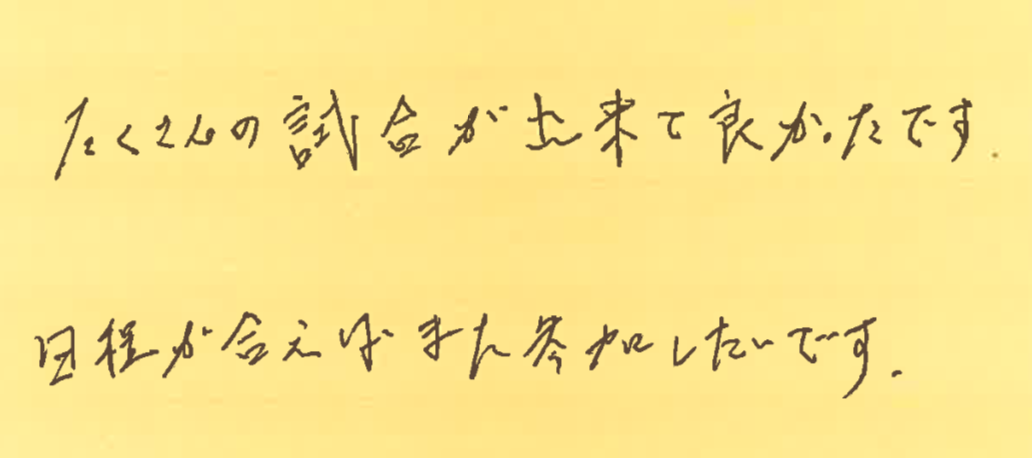 たくさんの試合が出来て良かったです.
日程が合えばまた参加したいです.